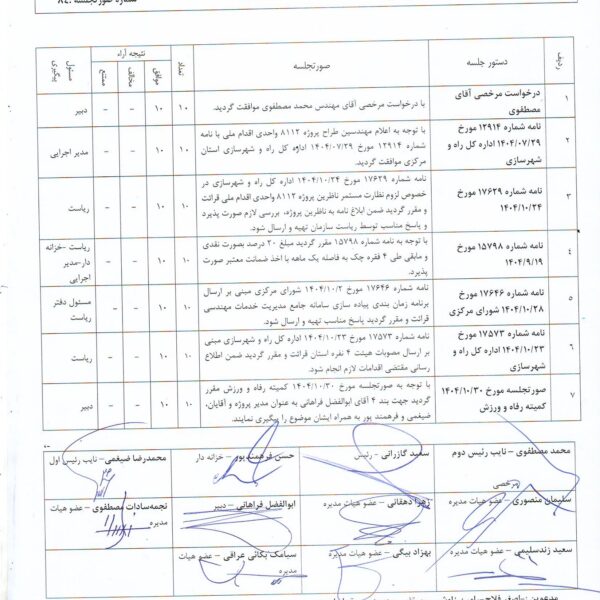 شماره صورتجلسه :۸۲
ردیف
دستور جلسه
صورتجلسه
تعداد
نتیجه آراء
موافق
مخالف
ممتنع
مسئول پیگیری
۱
درخواست مرخصی آقای
مصطفوی
با درخواست مرخصی آقای مهندس محمد مصطفوی موافقت گردید.
۱۰
۱۰
–
–
دبیر
۲
نامه شماره ۱۲۹۱۴ مورخ
۱۴۰۴/۰۷/۲۹ اداره کل راه و
شهرسازی
با توجه به اعلام مهندسین طراح پروژه ۸۱۱۲ واحدی اقدام ملی با نامه
شماره ۱۲۹۱۴ مورخ ۱۴۰۴/۰۷/۲۹ اداره کل راه و شهرسازی استان
مرکزی موافقت گردید.
۱۰
۱۰
–
–
مدیر اجرایی
۳
نامه شماره ۱۷۶۲۹ مورخ
۱۴۰۴/۱۰/۲۴
نامه شماره ۱۷۶۲۹ مورخ ۱۴۰۴/۱۰/۲۴ اداره کل راه و شهرسازی در
خصوص لزوم نظارت مستمر ناظرین پروژه ۸۱۱۲ واحدی اقدام ملی قرائت
و مقرر گردید ضمن ابلاغ نامه به ناظرین پروژه، بررسی لازم صورت پذیرد
و پاسخ مناسب توسط ریاست سازمان تهیه و ارسال شود.
۱۰
۱۰
–
–
ریاست
۴
نامه شماره ۱۵۷۹۸ مورخ
۱۴۰۴/۹/۱۹
با توجه به نامه شماره ۱۵۷۹۸ مقرر گردید مبلغ ۲۰ درصد بصورت نقدی
و مابقی طی ۴ فقره چک به فاصله یک ماهه با اخذ ضمانت معتبر صورت
پذیرد.
۱۰
۱۰
–
–
ریاست -خزانه
دار-مدیر
اجرایی
۵
نامه شماره ۱۷۶۴۶ مورخ
۱۴۰۴/۱۰/۲۸ شورای مرکزی
نامه شماره ۱۷۶۴۶ مورخ ۱۴۰۴/۱۰/۲ شورای مرکزی مبنی بر ارسال
برنامه زمان بندی پیاده سازی سامانه جامع مدیریت خدمات مهندسی
قرائت و مقرر گردید پاسخ مناسب تهیه و ارسال شود.
۱۰
۱۰
–
–
مسئول دفتر
ریاست
۶
نامه شماره ۱۷۵۷۳ مورخ
۱۴۰۴/۱۰/۲۳ اداره کل راه و
شهرسازی
نامه شماره ۱۷۵۷۳ مورخ ۱۴۰۴/۱۰/۲۳ اداره کل راه و شهرسازی مبنی
بر ارسال مصوبات هیئت ۴ نفره استان قرائت و مقرر گردید ضمن اطلاع
رسانی مقتضی اقدامات لازم انجام شود.
۱۰
۱۰
–
–
ریاست
۷
صورتجلسه مورخ ۱۴۰۴/۱۰/۳۰
کمیته رفاه و ورزش
با توجه به صورتجلسه مورخ ۱۴۰۴/۱۰/۳۰ کمیته رفاه و ورزش مقرر
گردید جهت بند ۴ آقای ابوالفضل فراهانی به عنوان مدیر پروژه و آقایان،
ضیغمی و فرهمند پور به همراه ایشان موضوع را پیگیری نمایند.
۱۰
۱۰
–
–
دبیر
محمد مصطفوی – نایب رئیس دوم
مرخصی
سعید گازرانی – رئیس
حسن فرهمندپور – خزانه دار
محمدرضا ضیغمی – نایب رئیس اول
سلیمان منصوری – عضو هیات مدیره
زهرا دهقانی – عضو هیات مدیره
ابوالفضل فراهانی – دبیر
نجمه‌سادات مصطفوی – عضو هیات
مدیره
سعید زندسلیمی – عضو هیات مدیره
بهزاد بیگی – عضو هیات مدیره
سیامک یکانی عراقی – عضو هیات
مدیره